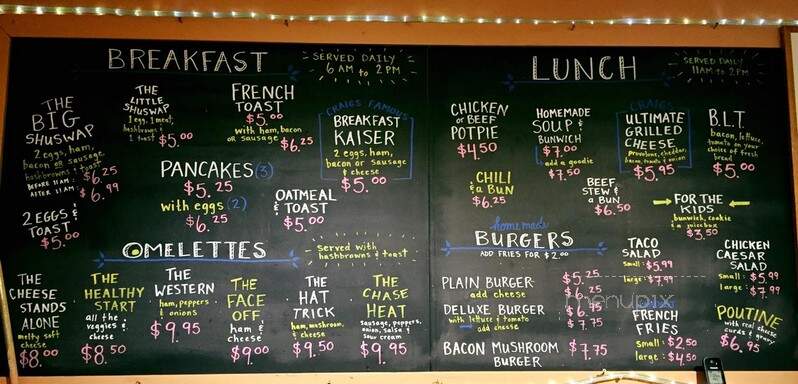 BREAKFAST
SERVED DAILY
6 AM to 2 PM
THE
BIG
SHUSWAP
2 eggs, ham,
bacon or sausage
hashbrowns & toast
BEFORE 11AM: $6.25
AFTER 11AM: $6.99
THE
LITTLE
SHUSWAP
1 egg, 1 meat,
hashbrowns &
1 toast $5.00
FRENCH
TOAST
$5.00
with ham, bacon
or sausage $6.25
CRAIG'S FAMOUS
BREAKFAST
KAISER
2 eggs, ham,
bacon or sausage
& cheese
$5.00
PANCAKES (3)
$5.25
with eggs (2)
$6.25
2 EGGS &
TOAST
$5.00
OATMEAL
& TOAST
$5.00
OMELETTES
Served with
hashbrowns & toast
THE
CHEESE
STANDS
ALONE
melty soft
cheese
$8.00
THE
HEALTHY
START
all the
veggies &
cheese
$8.50
THE
WESTERN
ham, peppers
& onions
$9.95
THE
FACE
OFF
ham &
cheese
$9.00
THE
HAT
TRICK
ham, mushroom,
& cheese
$9.50
THE
CHASE
HEAT
sausage, peppers,
onion, salsa &
sour cream
$9.95
LUNCH
SERVED DAILY
11AM to 2PM
CHICKEN
or BEEF
POTPIE
$4.50
HOMEMADE
SOUP &
BUNWICH
$7.00
add a goodie
$7.50
CRAIG'S
ULTIMATE
GRILLED
CHEESE
provolone, cheddar,
bacon, tomato & onion
$5.95
B.L.T.
bacon, lettuce,
tomato on your
choice of fresh
bread
$5.00
CHILI
& a BUN
$6.25
BEEF
STEW &
a BUN
$6.50
FOR THE
KIDS
bunwich, cookie
& a juicebox
$3.50
homemade
BURGERS
ADD FRIES FOR $2.00
PLAIN BURGER $5.25
add cheese
DELUXE BURGER $6.75
with lettuce & tomato
add cheese $7.75
BACON MUSHROOM
BURGER $7.75
TACO
SALAD
small: $5.99
large: $7.99
CHICKEN
CAESAR
SALAD
small: $5.99
large: $7.99
FRENCH
FRIES
small: $2.50
large: $4.50
POUTINE
with real cheese
curds & gravy
$6.95
menupix